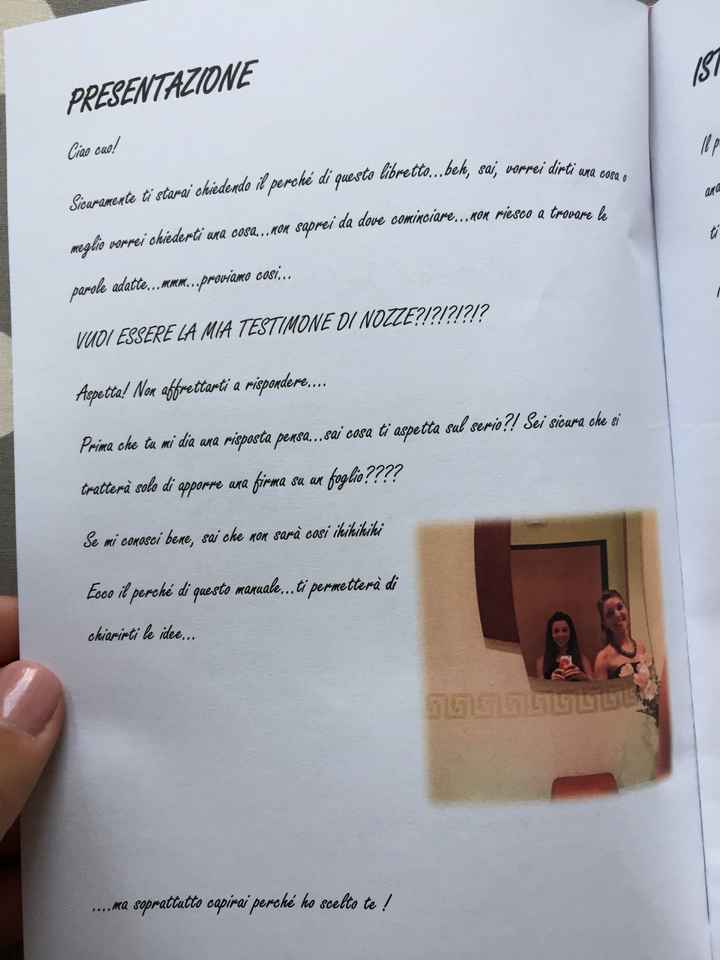 PRESENTAZIONE
Ciao cuo!
Sicuramente ti starai chiedendo il perché di questo libretto...beh, sai, vorrei dirti una cosa o
meglio vorrei chiederti una cosa...non saprei da dove cominciare...non riesco a trovare le
parole adatte...mmm...proviamo così...
VUOI ESSERE LA MIA TESTIMONE DI NOZZE?!?!?!?!?
Aspetta! Non affrettarti a rispondere....
Prima che tu mi dia una risposta pensa...sai cosa ti aspetta sul serio?! Sei sicura che si
tratterà solo di apporre una firma su un foglio????
Se mi conosci bene, sai che non sarà così ihihihihi
Ecco il perché di questo manuale...ti permetterà di
chiarirti le idee...
....ma soprattutto capirai perché ho scelto te !